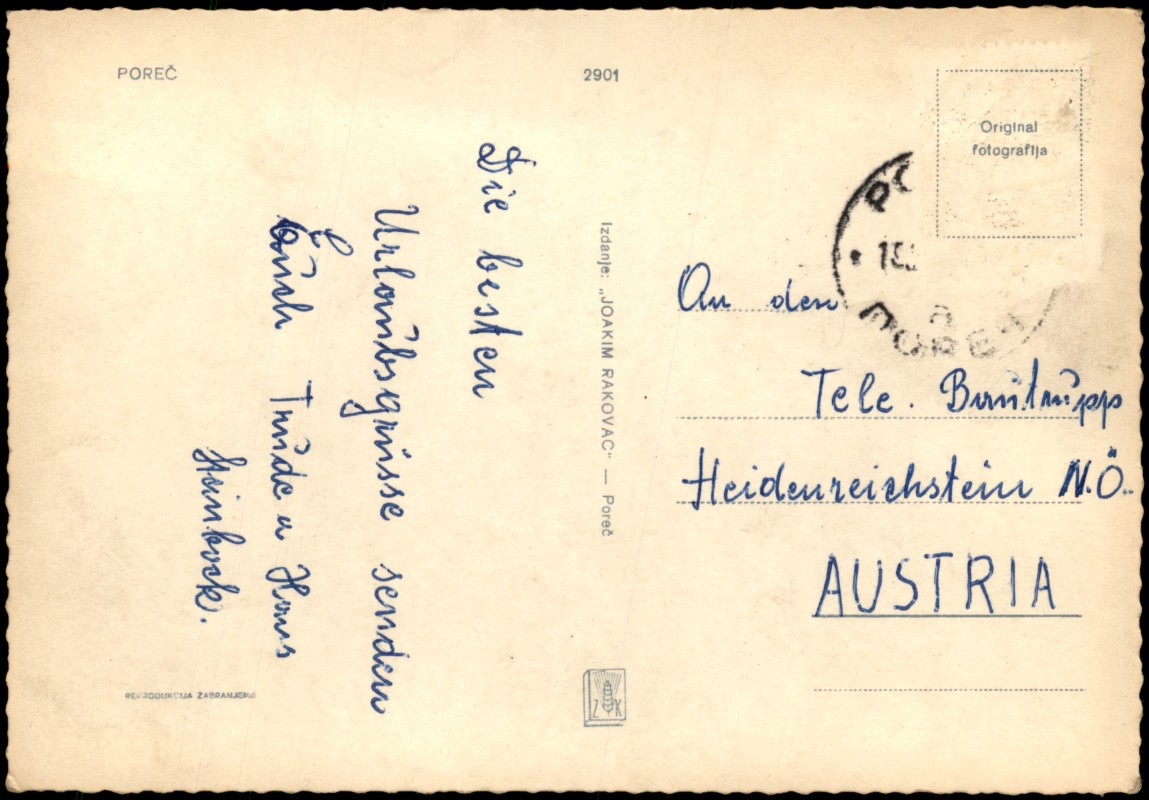 POREČ
2901
Original
fotografija
Die besten
Urlaubsgrüsse senden
Euch Trude u Hans
Steinbock.
Izdanje: „JOAKIM RAKOVAC" — Poreč
An den
Tele. Bautrupp
Heidenreichstein N.Ö..
AUSTRIA
REPRODUKCIJA ZABRANJENA
Z K